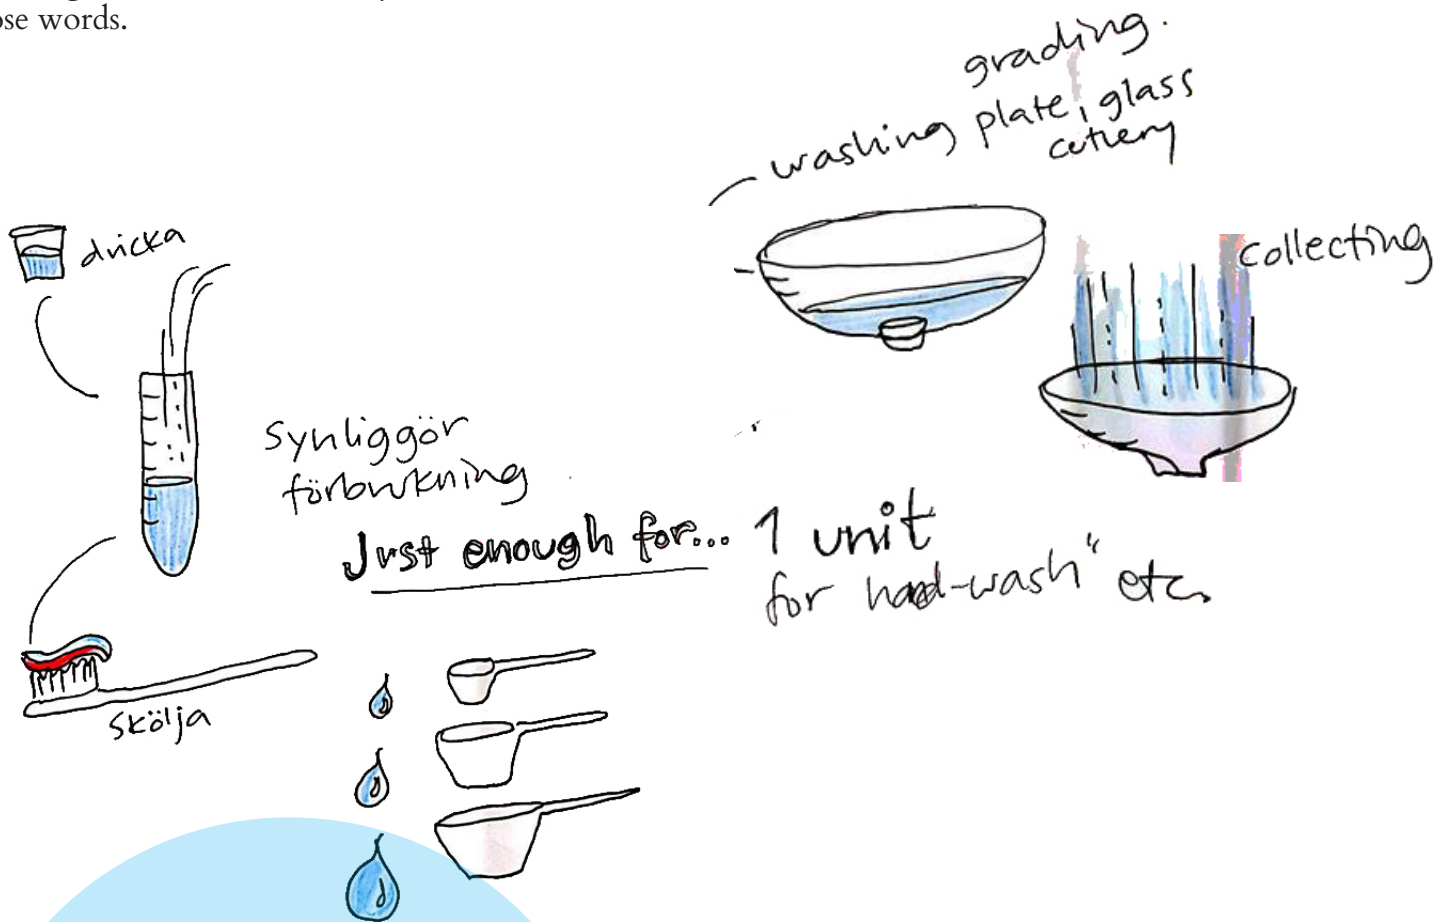 ose words.
grading.
washing plate, glass
cutlery
dricka
collecting
Synliggör
förbrukning
Just enough for... 1 unit
for hand-wash" etc.
skölja